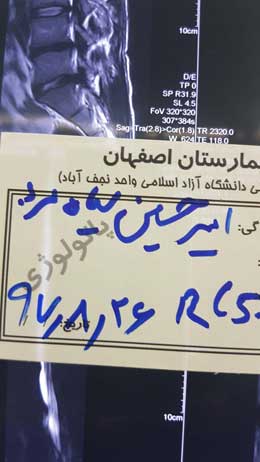 10cm
D/E
TP 0
SP R31.9
SL 4.5
FoV 320*320
307*384s
Sag>Tra(2.8)>Cor(1.8) TR 2320.0
W 624 TE 118.0
مارستان اصفهان
ی دانشگاه آزاد اسلامی واحد نجف آباد)
گی:
امیر حسین
پاتولوژی
تاریخ:
97/8/26
10cm